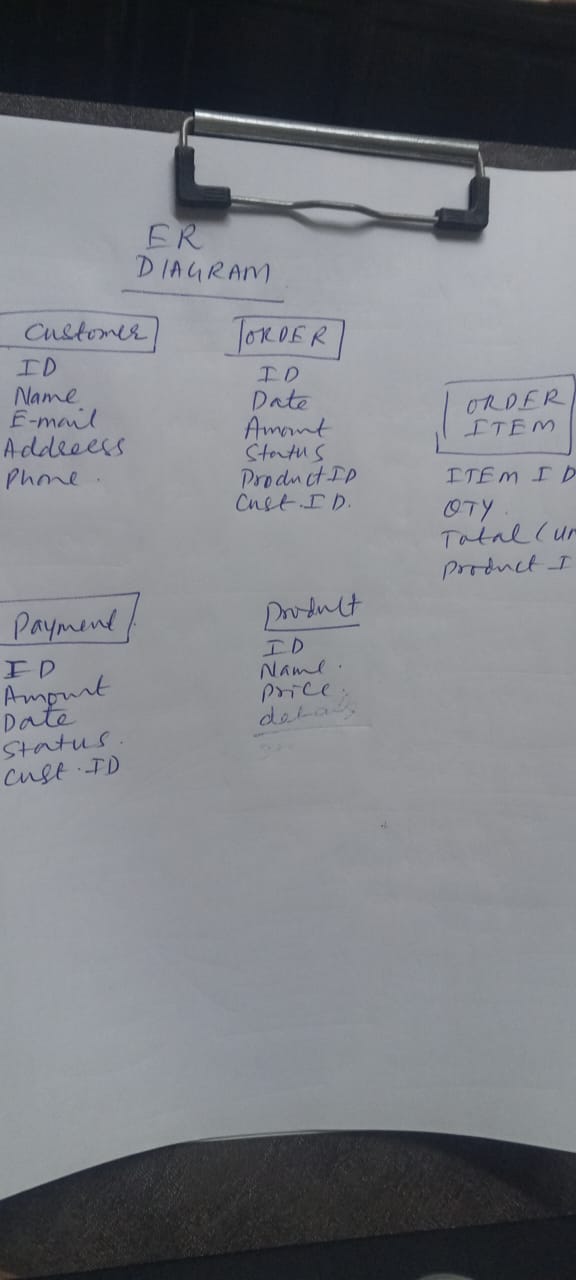 ER
DIAGRAM
Customer
ID
Name
E-mail
Address
Phone.
ORDER
ID
Date
Amount
Status
Product ID
Cust. ID.
ORDER
ITEM
ITEM ID
QTY.
Total (un
Product I
Payment
ID
Amount
Date
Status.
Cust. ID
Product
ID
Name.
Price.
details